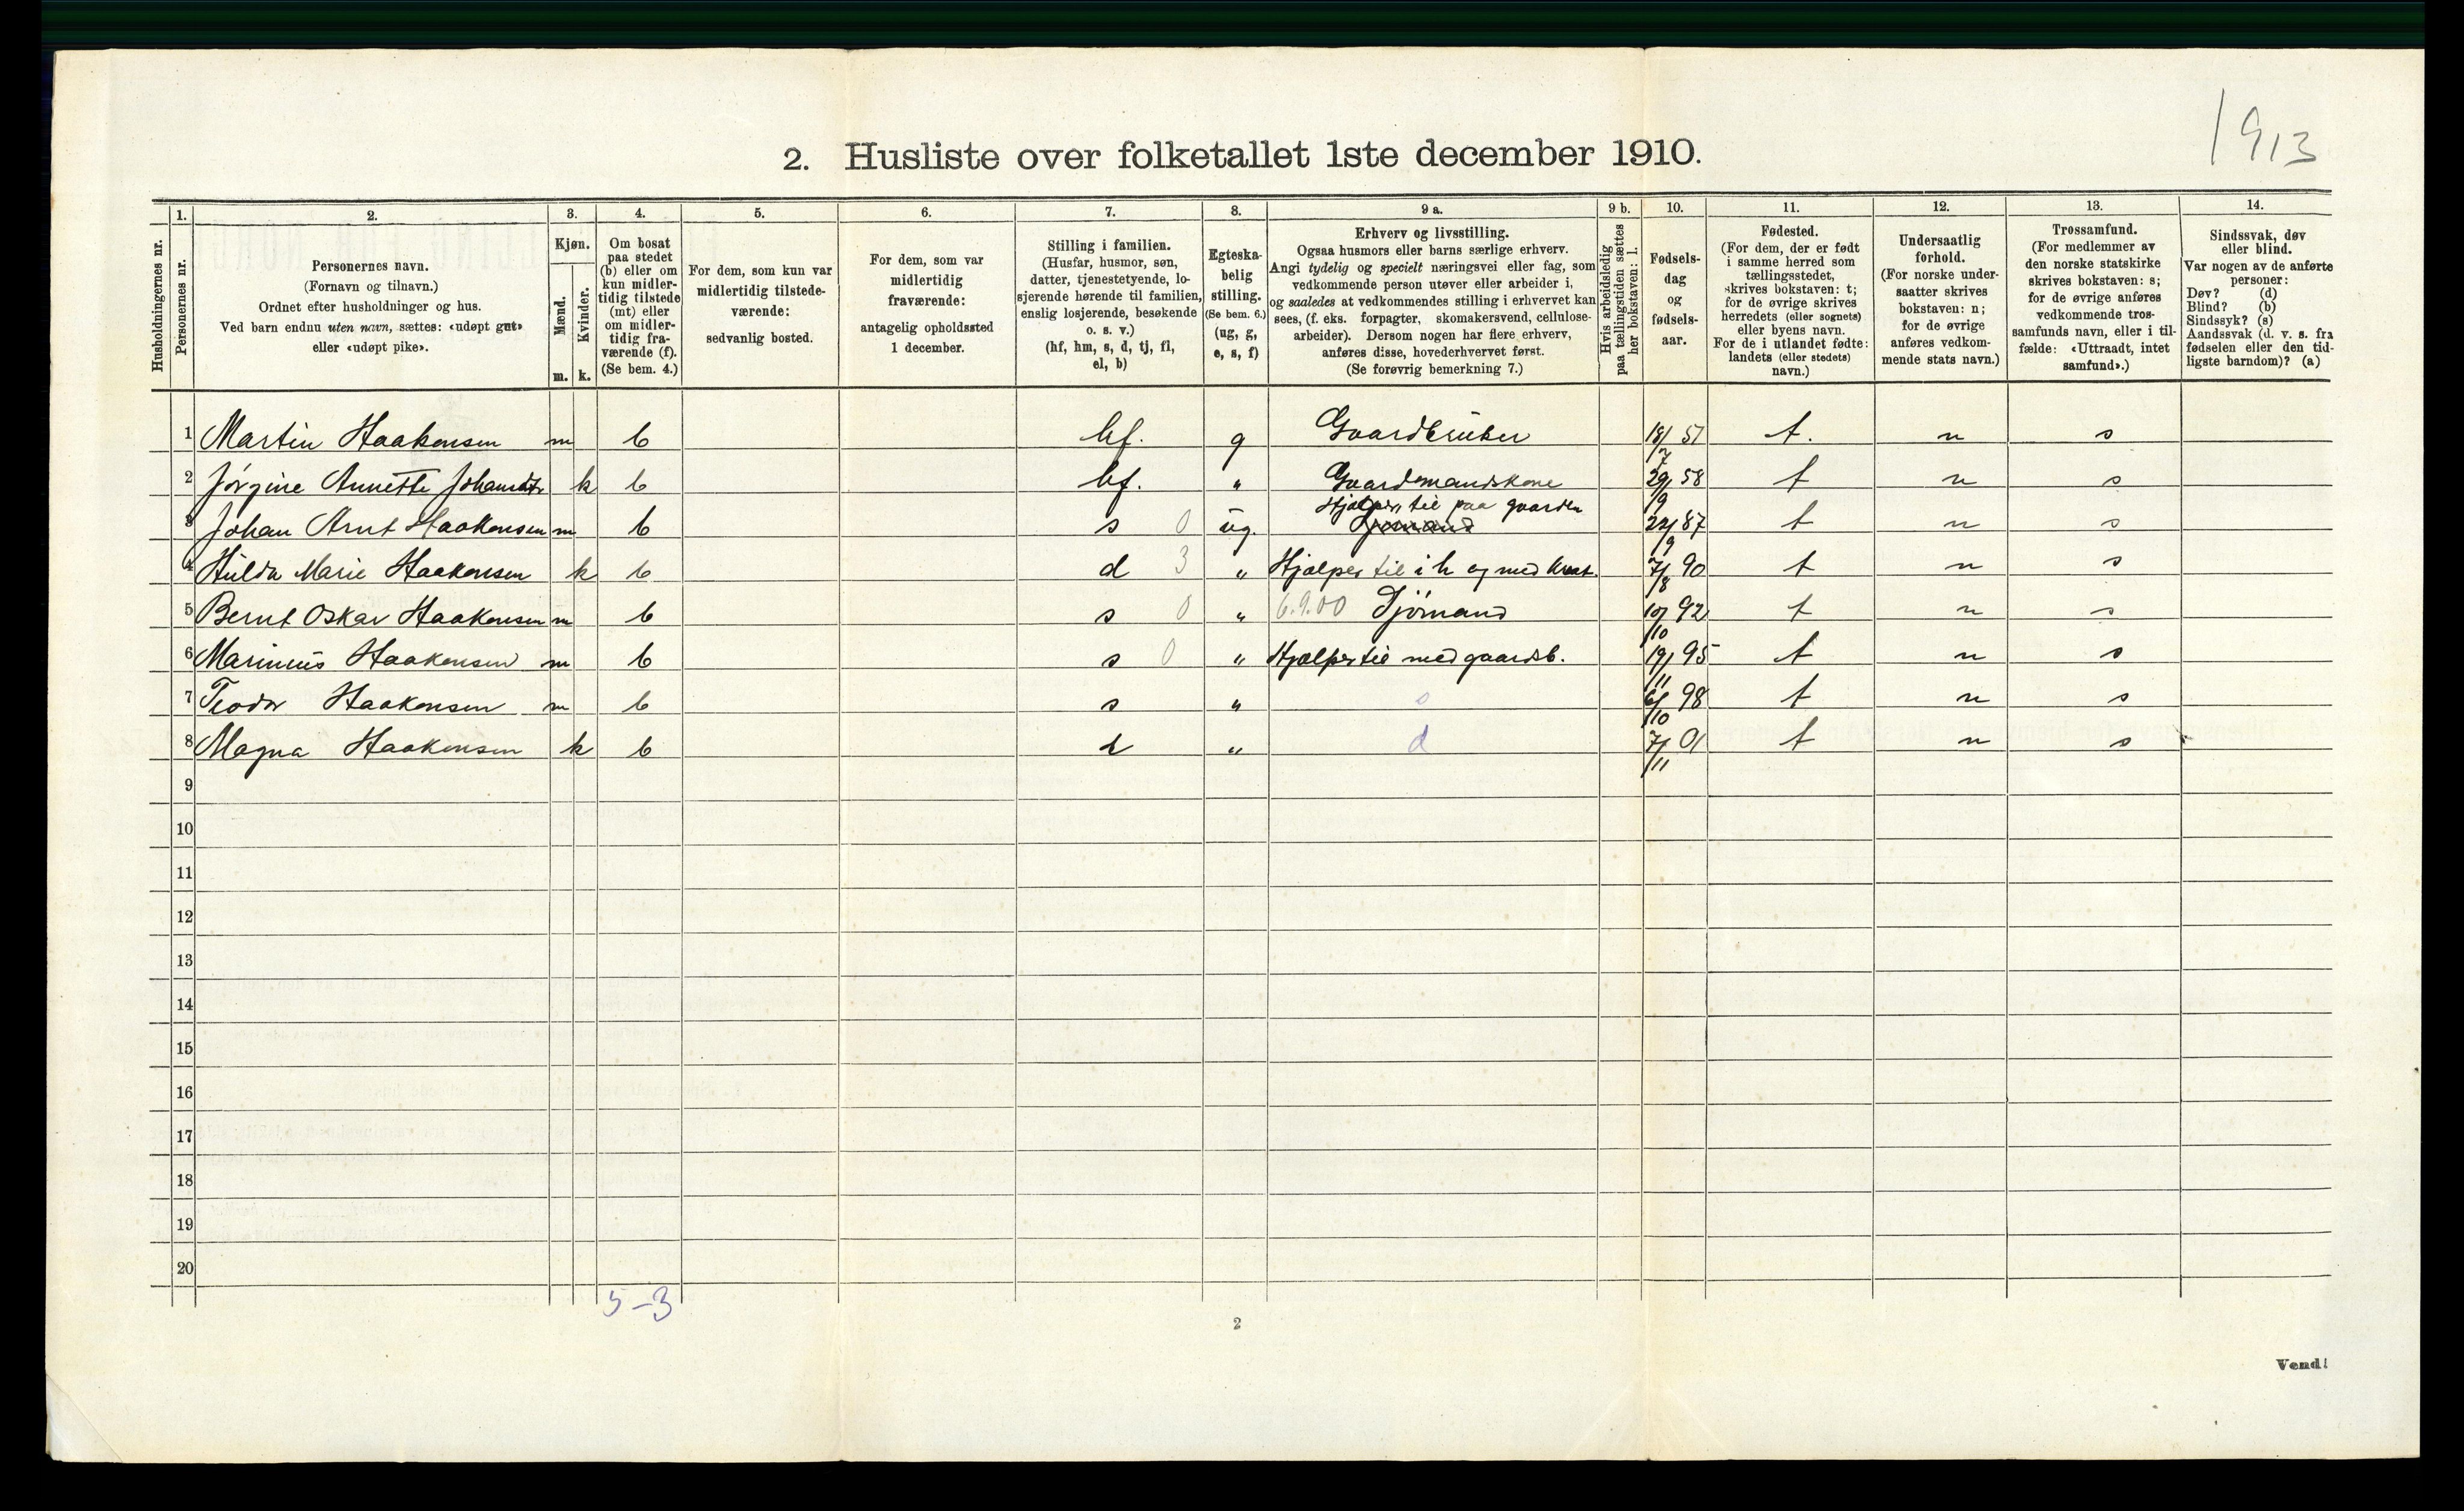 1913
2. Husliste over folketallet 1ste december 1910.
Husholdningernes nr.
1. Personernes nr.
2. Personernes navn.
(Fornavn og tilnavn.)
Ordnet efter husholdninger og hus.
Ved barn endnu uten navn, sættes: «udøpt gut»
eller «udøpt pike».
3. Kjøn.
Mænd. m.
Kvinder. k.
4. Om bosat
paa stedet
(b) eller om
kun midler-
tidig tilstede
(mt) eller
om midler-
tidig fra-
værende (f).
(Se bem. 4.)
5. For dem, som kun var
midlertidig tilstede-
værende:
sedvanlig bosted.
6. For dem, som var
midlertidig
fraværende:
antagelig opholdssted
1 december.
7. Stilling i familien.
(Husfar, husmor, søn,
datter, tjenestetyende, lo-
sjerende hørende til familien,
enslig losjerende, besøkende
o. s. v.)
(hf, hm, s, d, tj, fl,
el, b)
8. Egteska-
belig
stilling.
(Se bem. 6.)
(ug, g,
e, s, f)
9 a. Erhverv og livsstilling.
Ogsaa husmors eller barns særlige erhverv.
Angi tydelig og specielt næringsvei eller fag, som
vedkommende person utøver eller arbeider i,
og saaledes at vedkommendes stilling i erhvervet kan
sees, (f. eks. forpagter, skomakersvend, cellulose-
arbeider). Dersom nogen har flere erhverv,
anføres disse, hovederhvervet først.
(Se forøvrig bemerkning 7.)
9 b. Hvis arbeidsledig
paa tællingstiden sættes
her bokstaven: l.
10. Fødsels-
dag
og
fødsels-
aar.
11. Fødested.
(For dem, der er født
i samme herred som
tællingsstedet,
skrives bokstaven: t;
for de øvrige skrives
herredets (eller sognets)
eller byens navn.
For de i utlandet fødte:
landets (eller stedets)
navn.)
12. Undersaatlig
forhold.
(For norske under-
saatter skrives
bokstaven: n;
for de øvrige
anføres vedkom-
mende stats navn.)
13. Trossamfund.
(For medlemmer av
den norske statskirke
skrives bokstaven: s;
for de øvrige anføres
vedkommende tros-
samfunds navn, eller i til-
fælde: «Uttraadt, intet
samfund».)
14. Sindssvak, døv
eller blind.
Var nogen av de anførte
personer:
Døv? (d)
Blind? (b)
Sindssyk? (s)
Aandssvak (d. v. s. fra
fødselen eller den tid-
ligste barndom)? (a)
1 Martin Haakensen m b hf. g Gaardbruker 18/7 57 t. n s
2 Jørgine Annette Johansdtr k b hf. " Gaardmandskone 29/9 58 t n s
Hjælper til paa gaarden
3 Johan Arnt Haakensen m b s 0 ug. Sjømand 22/9 87 t n s
4 Hulda Marie Haakensen k b d 3 " Hjælper til i h og med kreat. 7/8 90 t n s
5 Bernt Oskar Haakensen m b s 0 " 6.9.00 Sjømand 10/10 92 t n s
6 Marinius Haakensen m b s 0 " Hjælper til med gaardsb. 19/11 95 t n s
7 Teodor Haakensen m b s " s 6/10 98 t n s
8 Magna Haakensen k b d " d 7/11 01 t n s
9
10
11
12
13
14
15
16
17
18
19
20
5-3
2
Vend!